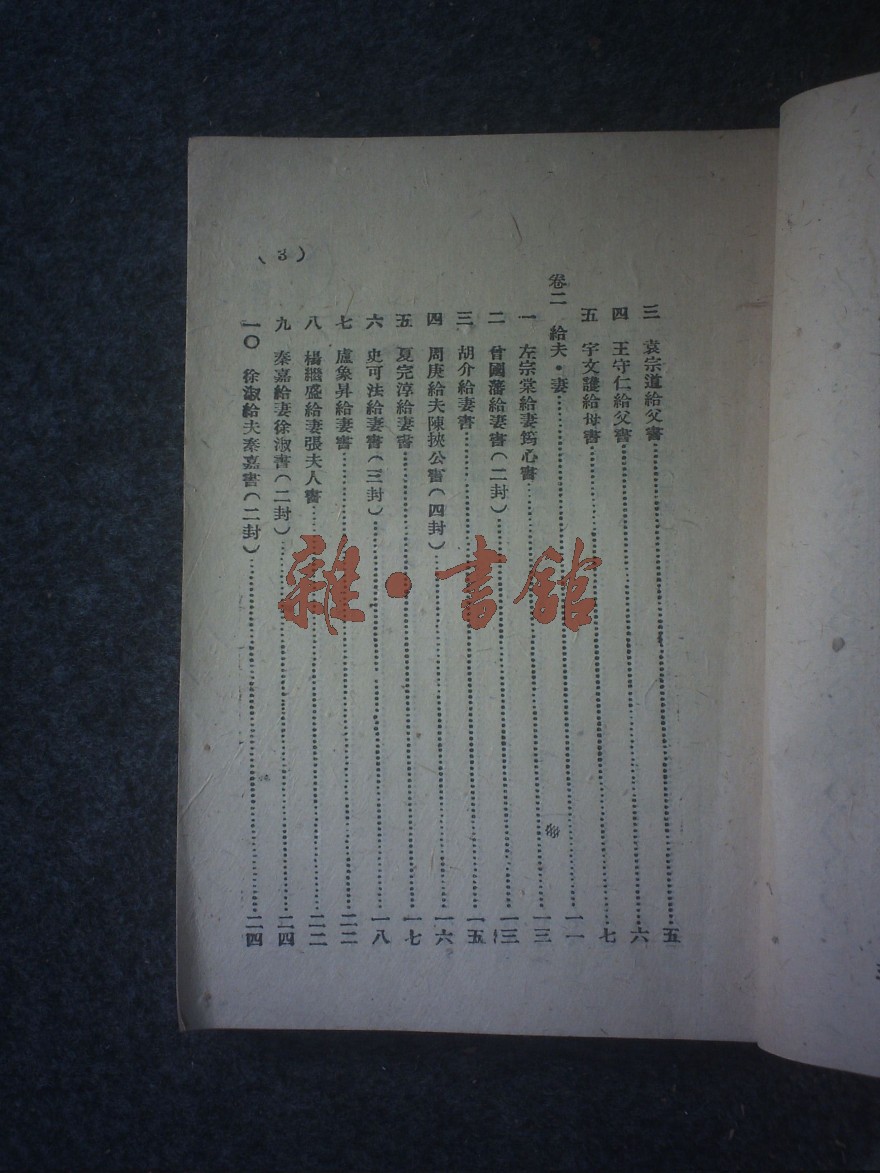 (3)
三 袁宗道給父書……五
四 王守仁給父書……六
五 宇文護給母書……七
卷二 給夫·妻……一一
一 左宗棠給妻筠心書……一三
二 曾國藩給妻書(二封)……一三
三 胡介給妻書……一五
四 周庚給夫陳挾公書(四封)……一六
五 夏完淳給妻書……一七
六 史可法給妻書(三封)……一八
七 盧象昇給妻書……二二
八 楊繼盛給妻張夫人書……二二
九 秦嘉給妻徐淑書(二封)……二四
一〇 徐淑給夫秦嘉書(二封)……二四
雜·書館